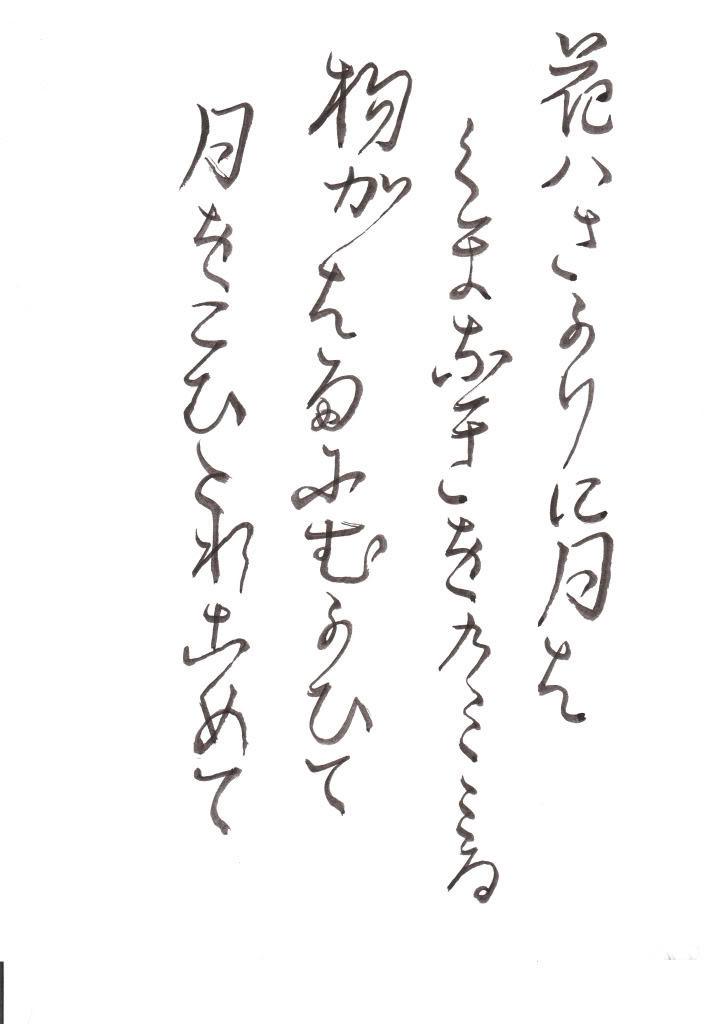 花ハさかりに月は
くまなきをのミミる
物かは雨にむかひて
月をこひたれこめて